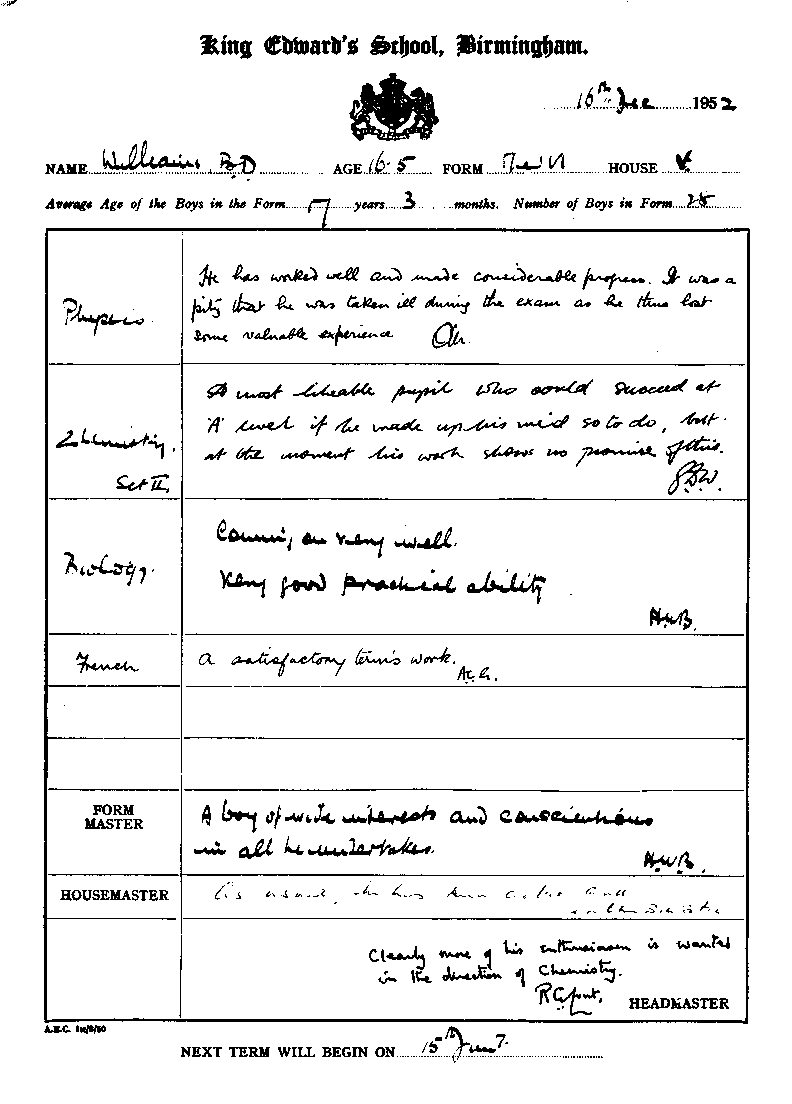 King Edward's School, Birmingham.
16th Dec 1952
NAME Williams, B.D AGE 16·5 FORM HOUSE
Average Age of the Boys in the Form 17 years 3 months. Number of Boys in Form 25
Physics
He has worked well and made considerable progress. It was a
pity that he was taken ill during the exam as he thus lost
some valuable experience
Chemistry,
Set II,
A most likeable pupil who could succeed at
'A' level if he made up his mind so to do, but
at the moment his work shows no promise of this.
Biology.
Coming on very well.
Very good practical ability
H.W.B.
French
A satisfactory term's work.
FORM
MASTER
A boy of wide interests and conscientious
in all he undertakes.
H.W.B.
HOUSEMASTER
As usual, he has been active and
enthusiastic
Clearly more of his enthusiasm is wanted
in the direction of Chemistry.
HEADMASTER
NEXT TERM WILL BEGIN ON 15th Jan